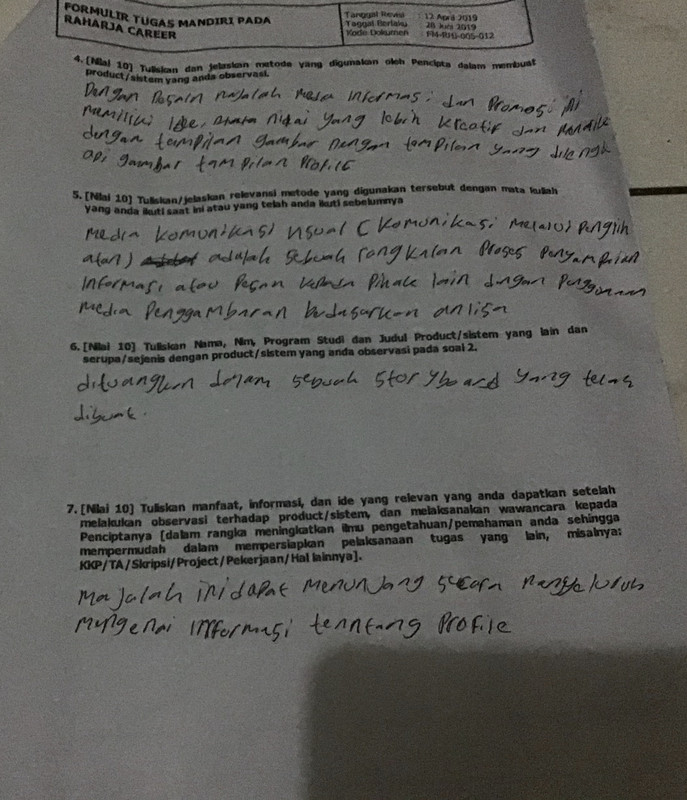 FORMULIR TUGAS MANDIRI PADA
RAHARJA CAREER
Tanggal Revisi : 12 April 2019
Tanggal Berlaku : 28 Juni 2019
Kode Dokumen : FM-RHJ-005-012
4. [Nilai 10] Tuliskan dan jelaskan metode yang digunakan oleh Pencipta dalam membuat
product/sistem yang anda observasi.
Dengan Desain majalah media informasi dan Promosi ini
memiliki ide, nilai yang lebih kreatif dan
dengan tampilan gambar dengan tampilan yang
api gambar tampilan Profile
5. [Nilai 10] Tuliskan/jelaskan relevansi metode yang digunakan tersebut dengan mata kuliah
yang anda ikuti saat ini atau yang telah anda ikuti sebelumnya
Media komunikasi visual ( komunikasi melalui penglih
atan ) adalah sebuah rangkaian Proses Penyampaian
informasi atau Pesan Pihak lain dengan Penggunaan
media Penggambaran
6. [Nilai 10] Tuliskan Nama, Nim, Program Studi dan Judul Product/sistem yang lain dan
serupa/sejenis dengan product/sistem yang anda observasi pada soal 2.
dituangkan dalam sebuah storyboard yang telah
dibuat.
7. [Nilai 10] Tuliskan manfaat, informasi, dan ide yang relevan yang anda dapatkan setelah
melakukan observasi terhadap product/sistem, dan melaksanakan wawancara kepada
Penciptanya [dalam rangka meningkatkan ilmu pengetahuan/pemahaman anda sehingga
mempermudah dalam mempersiapkan pelaksanaan tugas yang lain, misalnya:
KKP/TA/Skripsi/Project/Pekerjaan/Hal lainnya].
Majalah ini dapat menunjang secara
mengenai informasi tenntang Profile